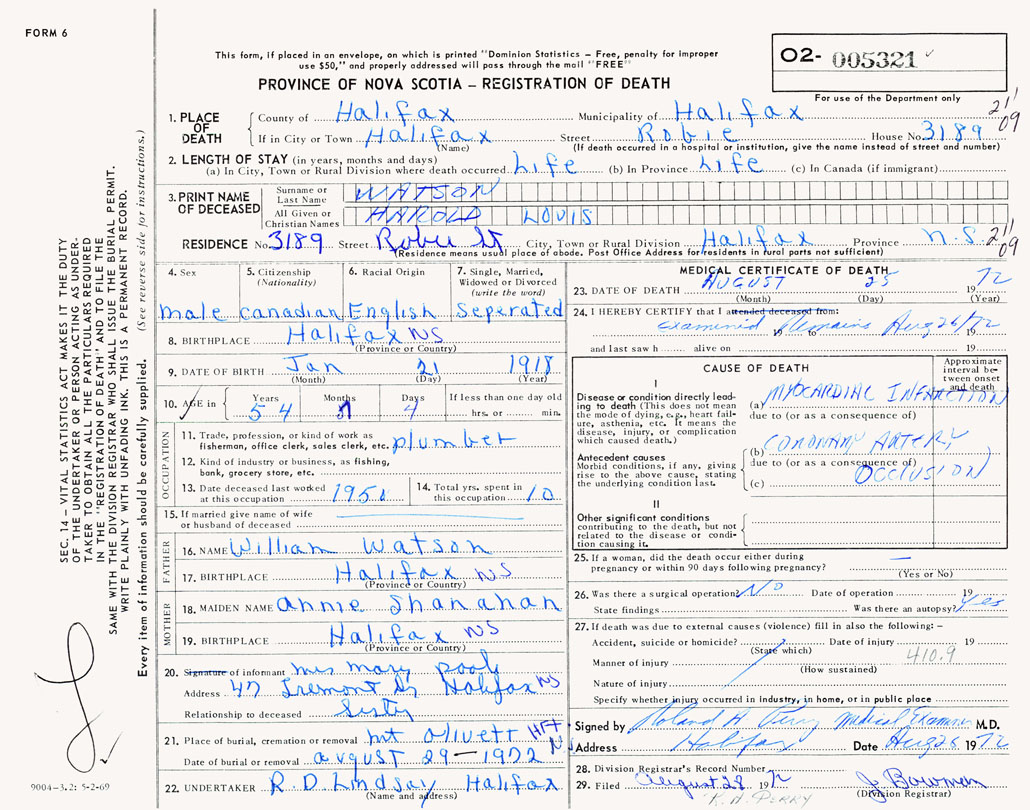 FORM 6
This form, if placed in an envelope, on which is printed "Dominion Statistics – Free, penalty for improper
use $50," and properly addressed will pass through the mail "FREE"
PROVINCE OF NOVA SCOTIA – REGISTRATION OF DEATH
O2- 005321
For use of the Department only
211
09
1. PLACE OF DEATH
County of Halifax Municipality of Halifax
If in City or Town Halifax Street Robie House No. 3189
(Name) (If death occurred in a hospital or institution, give the name instead of street and number)
2. LENGTH OF STAY (in years, months and days)
(a) In City, Town or Rural Division where death occurred Life (b) In Province Life (c) In Canada (if immigrant)
3. PRINT NAME OF DECEASED
Surname or Last Name WATSON
All Given or Christian Names HAROLD LOUIS
RESIDENCE No. 3189 Street Robie St City, Town or Rural Division Halifax Province N.S. 211
09
(Residence means usual place of abode. Post Office Address for residents in rural parts not sufficient)
4. Sex
male
5. Citizenship (Nationality)
canadian
6. Racial Origin
English
7. Single, Married, Widowed or Divorced (write the word)
Seperated
8. BIRTHPLACE Halifax NS
(Province or Country)
9. DATE OF BIRTH Jan 21 1918
(Month) (Day) (Year)
10. AGE in
Years Months Days If less than one day old
54 7 4 hrs. or min.
OCCUPATION
11. Trade, profession, or kind of work as fisherman, office clerk, sales clerk, etc. plumber
12. Kind of industry or business, as fishing, bank, grocery store, etc.
13. Date deceased last worked at this occupation 1951
14. Total yrs. spent in this occupation 10
15. If married give name of wife or husband of deceased
FATHER
16. NAME William Watson
17. BIRTHPLACE Halifax NS
(Province or Country)
MOTHER
18. MAIDEN NAME Annie Shanahan
19. BIRTHPLACE Halifax NS
(Province or Country)
20. Signature of informant mrs mary pooly
Address 47 Tremont Dr Halifax NS
Relationship to deceased Sister
21. Place of burial, cremation or removal mt olivett HFX NS
Date of burial or removal august 29 – 1972
22. UNDERTAKER R.D. Lindsay Halifax
(Name and address)
MEDICAL CERTIFICATE OF DEATH
23. DATE OF DEATH AUGUST 25 1972
(Month) (Day) (Year)
24. I HEREBY CERTIFY that I attended deceased from:
examined remains Aug 26/72
19 to
and last saw h alive on 19
CAUSE OF DEATH
Approximate interval between onset and death
I
Disease or condition directly leading to death (This does not mean the mode of dying, e.g., heart failure, asthenia, etc. It means the disease, injury, or complication which caused death.)
(a) MYOCARDIAC INFARCTION
due to (or as a consequence of)
Antecedent causes
Morbid conditions, if any, giving rise to the above cause, stating the underlying condition last.
(b) CORONARY ARTERY
due to (or as a consequence of)
(c) OCCLUSION
II
Other significant conditions contributing to the death, but not related to the disease or condition causing it.
25. If a woman, did the death occur either during
pregnancy or within 90 days following pregnancy? –
(Yes or No)
26. Was there a surgical operation? No Date of operation 19
State findings Was there an autopsy? Yes
27. If death was due to external causes (violence) fill in also the following: –
Accident, suicide or homicide? Date of injury 19
(State which) 410.9
Manner of injury
(How sustained)
Nature of injury
Specify whether injury occurred in industry, in home, or in public place
Signed by Roland A Perry Medical Examiner M.D.
Address Halifax Date Aug 26 1972
28. Division Registrar's Record Number
29. Filed August 28 1972 J. Bowman
(Division Registrar)
R. A. PERRY
SEC. 14 – VITAL STATISTICS ACT MAKES IT THE DUTY
OF THE UNDERTAKER OR PERSON ACTING AS UNDER-
TAKER TO OBTAIN ALL THE PARTICULARS REQUIRED
IN THE "REGISTRATION OF DEATH" AND TO FILE THE
SAME WITH THE DIVISION REGISTRAR WHO SHALL ISSUE THE BURIAL PERMIT.
WRITE PLAINLY WITH UNFADING INK. THIS IS A PERMANENT RECORD.
Every item of information should be carefully supplied. (See reverse side for instructions.)
9004–3.2: 5-2-69